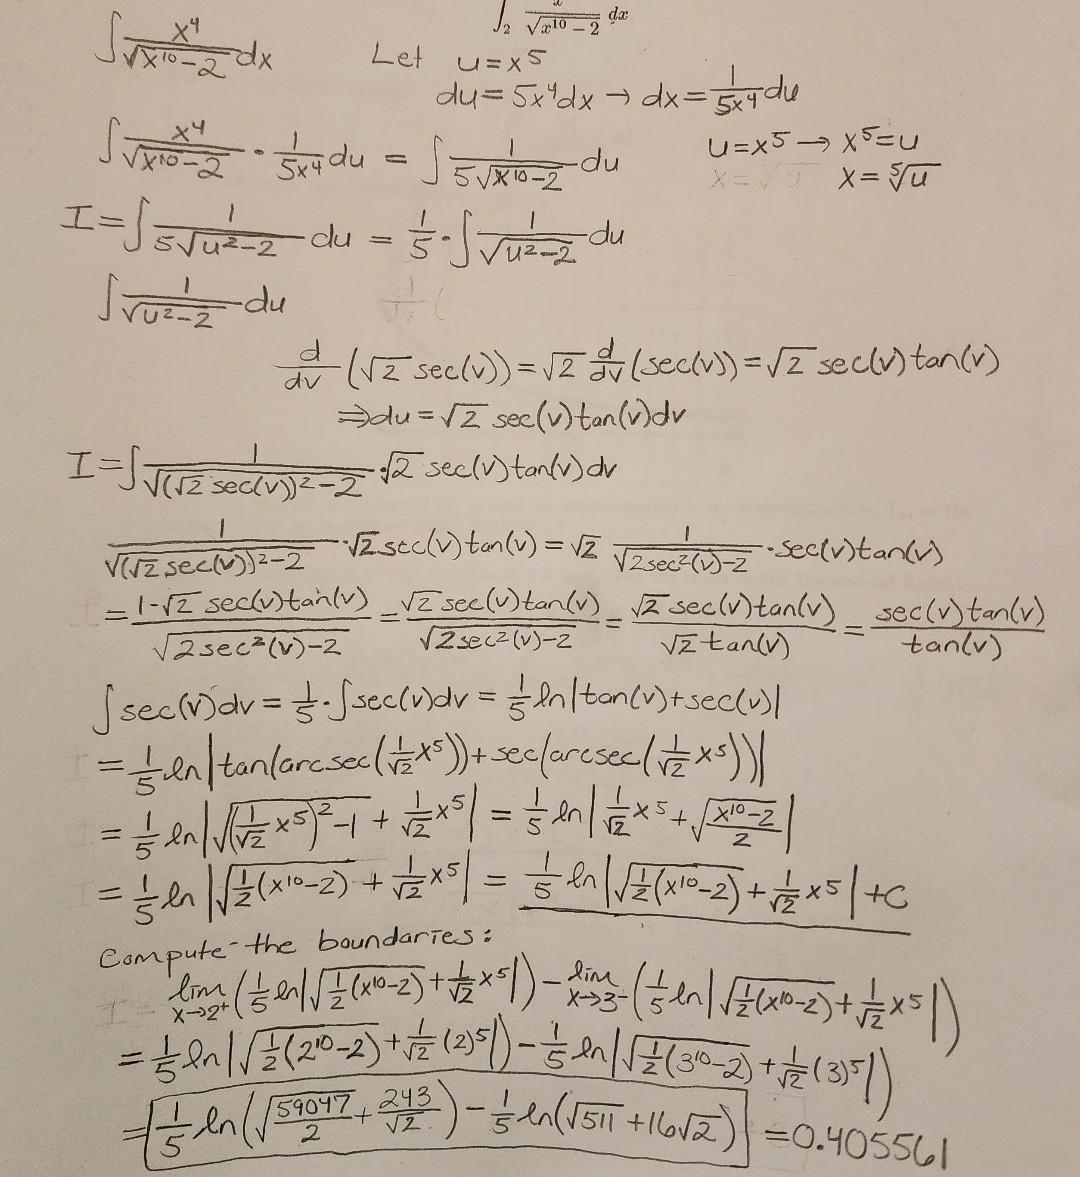 ∫₂ x/√(x¹⁰ − 2) dx
∫ x⁴/√(x¹⁰−2) dx Let u = x⁵
du = 5x⁴dx → dx = 1/(5x⁴) du
∫ x⁴/√(x¹⁰−2) · 1/(5x⁴) du = ∫ 1/(5√(x¹⁰−2)) du u = x⁵ → x⁵ = u
x = ⁵√u
I = ∫ 1/(5√(u²−2)) du = 1/5 · ∫ 1/√(u²−2) du
∫ 1/√(u²−2) du
d/dv (√2 sec(v)) = √2 d/dv (sec(v)) = √2 sec(v) tan(v)
⇒ du = √2 sec(v) tan(v) dv
I = ∫ 1/√((√2 sec(v))²−2) · √2 sec(v) tan(v) dv
1/√((√2 sec(v))²−2) · √2 sec(v) tan(v) = √2 1/√(2sec²(v)−2) · sec(v) tan(v)
= 1·√2 sec(v) tan(v)/√(2sec²(v)−2) = √2 sec(v) tan(v)/√(2sec²(v)−2) = √2 sec(v) tan(v)/(√2 tan(v)) = sec(v) tan(v)/tan(v)
∫ sec(v) dv = 1/5 · ∫ sec(v) dv = 1/5 ln|tan(v) + sec(v)|
= 1/5 ln|tan(arcsec(1/√2 x⁵)) + sec(arcsec(1/√2 x⁵))|
= 1/5 ln|√((1/√2 x⁵)²−1) + 1/√2 x⁵| = 1/5 ln|1/√2 x⁵ + √((x¹⁰−2)/2)|
= 1/5 ln|√(1/2(x¹⁰−2)) + 1/√2 x⁵| = 1/5 ln|√(1/2(x¹⁰−2)) + 1/√2 x⁵| + C
Compute the boundaries:
lim x→2⁺ (1/5 ln|√(1/2(x¹⁰−2)) + 1/√2 x⁵|) − lim x→3⁻ (1/5 ln|√(1/2(x¹⁰−2)) + 1/√2 x⁵|)
= 1/5 ln|√(1/2(2¹⁰−2)) + 1/√2 (2)⁵|) − 1/5 ln|√(1/2(3¹⁰−2)) + 1/√2 (3)⁵|)
= 1/5 ln(√(59047/2) + 243/√2) − 1/5 ln(√511 + 16√2) = 0.405561